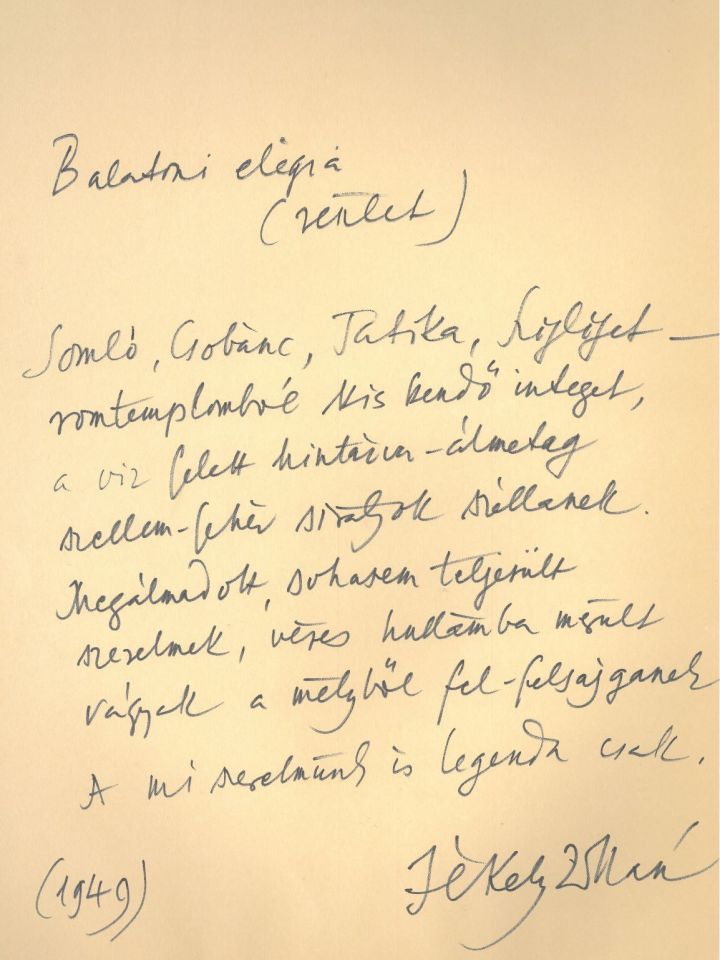 Balatoni elégia
(részlet)
Somló, Csobánc, Tátika, Szigliget —
romtemplomból kis kendő integet,
a víz felett hintázva-álmatag
szellem-fehér sirályok szállanak.
Megálmodott, sohasem teljesült
szerelmek, véres hullámba merült
vágyak a mélyből fel-felsajganak
A mi szerelmünk is legenda csak.
(1949)
Jékely Zoltán